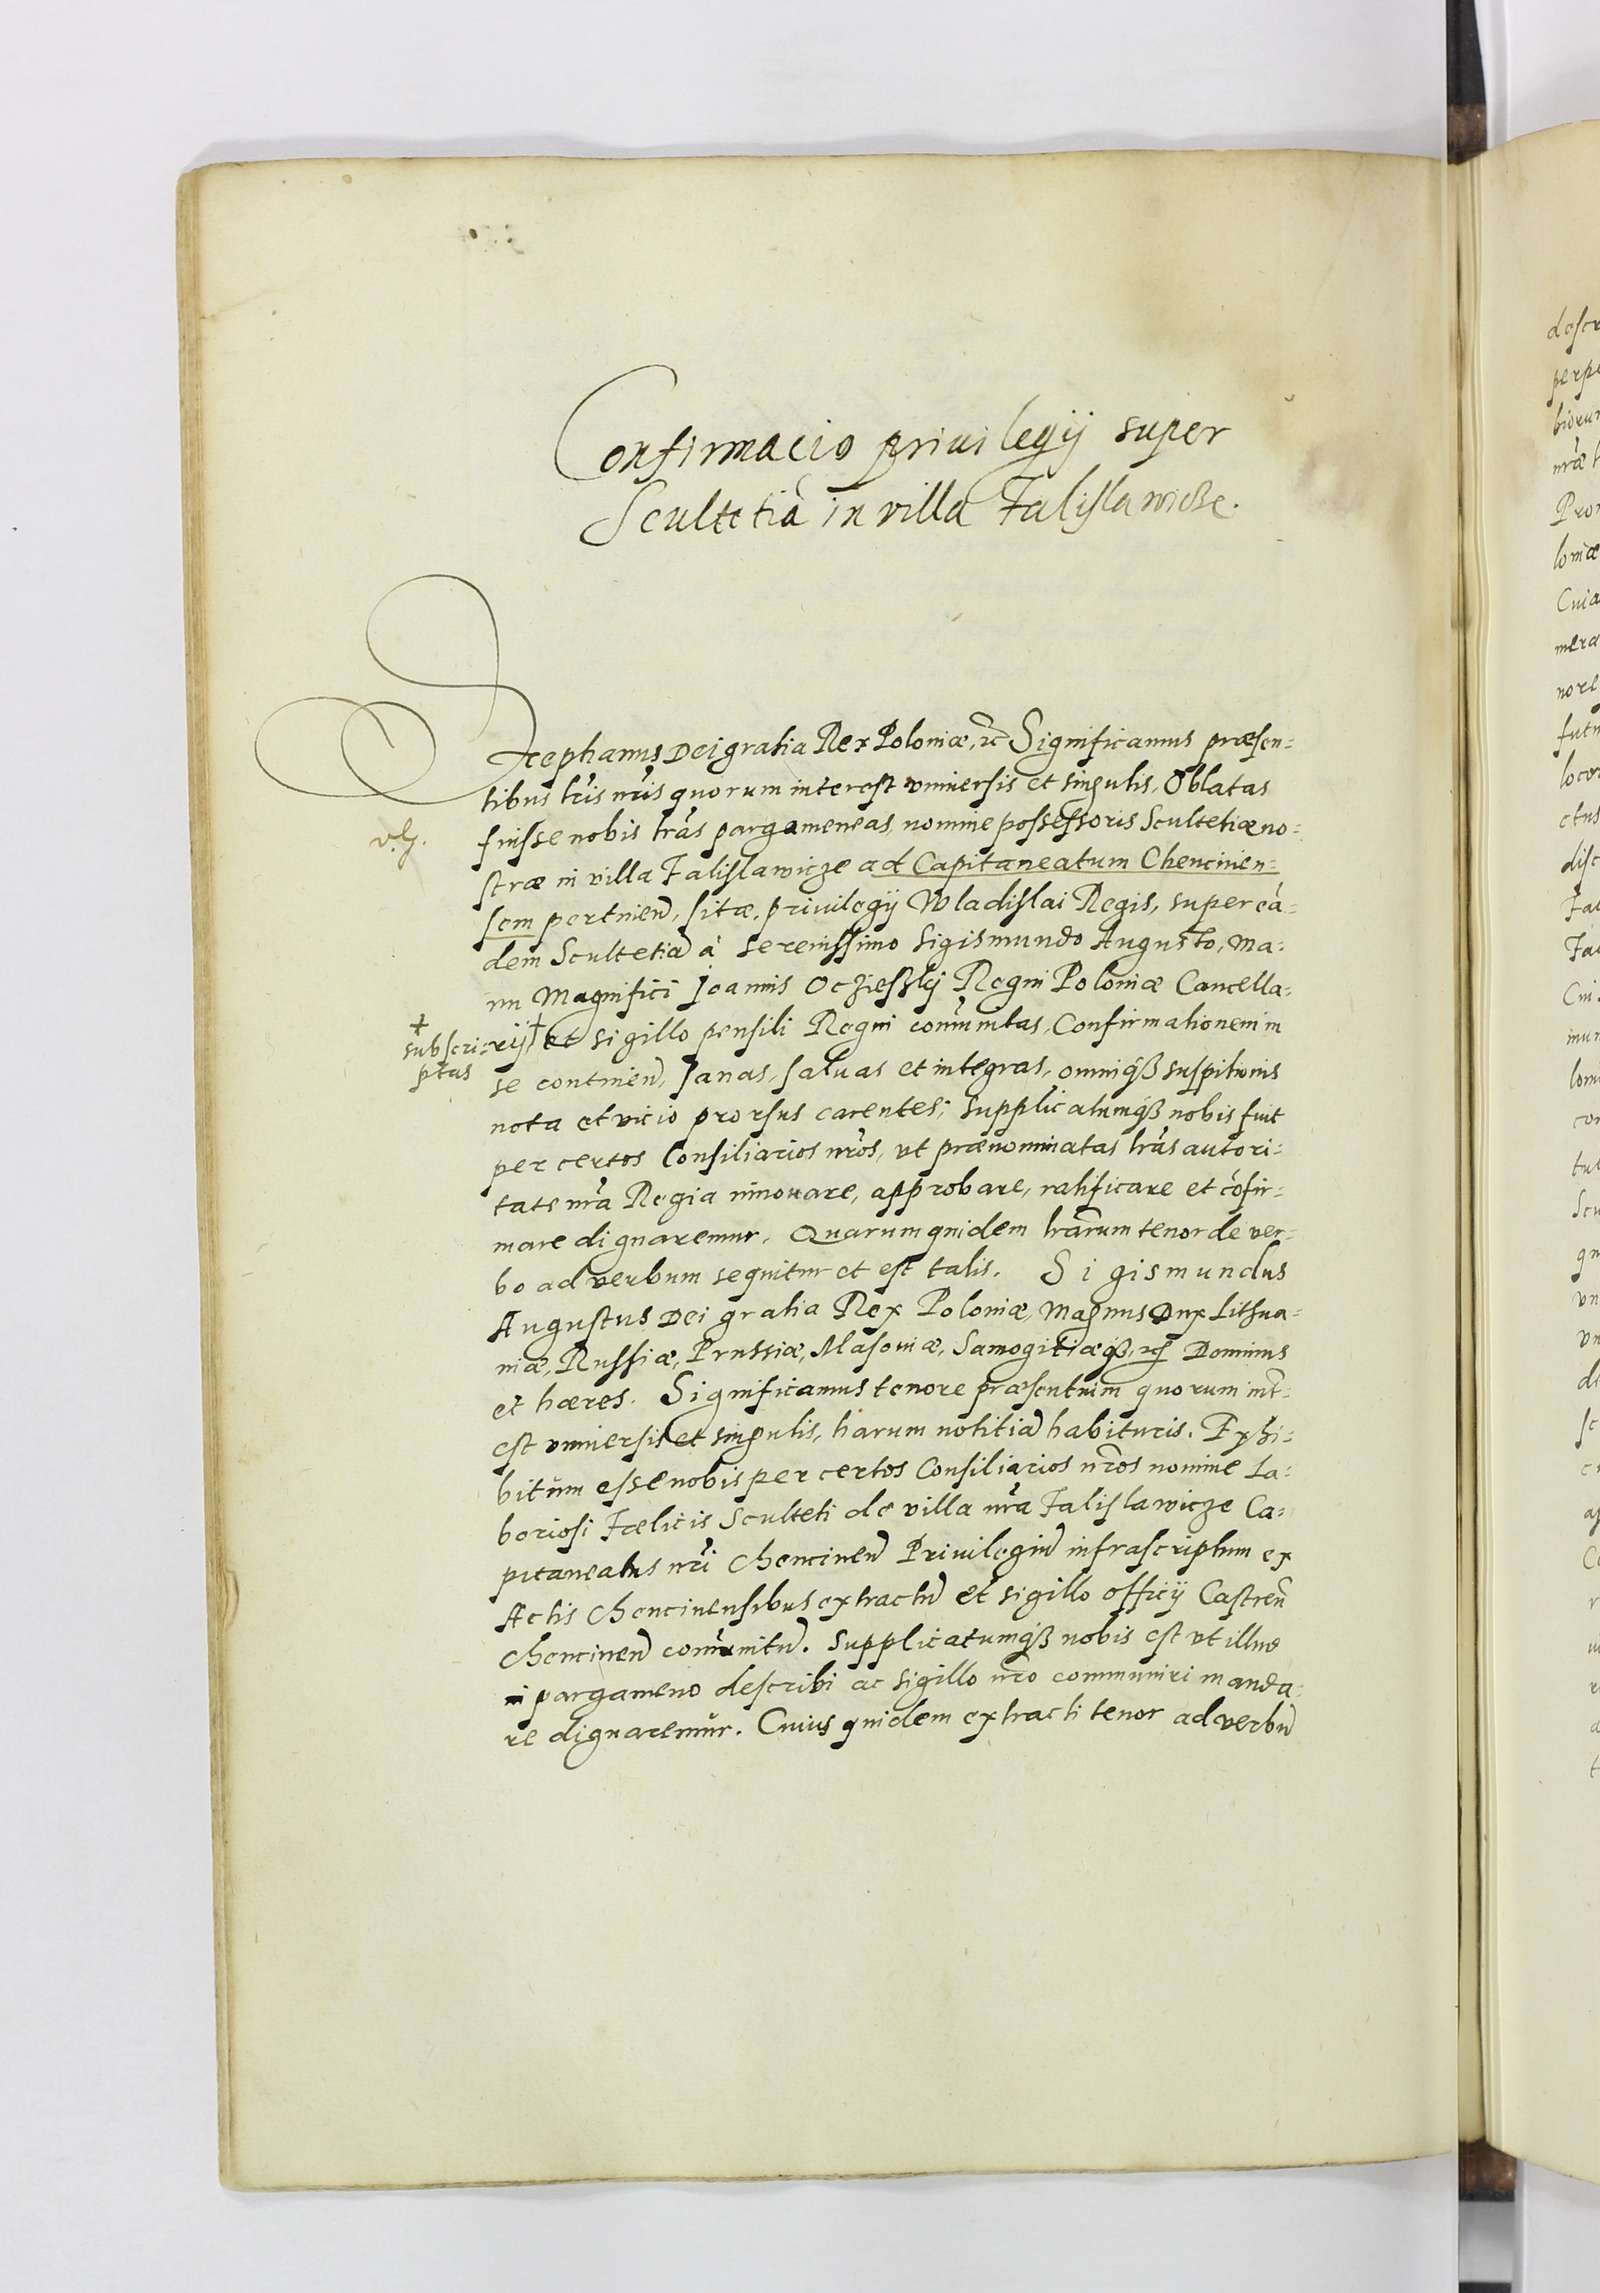 Confirmacio priuilegij super
Scultetiã in villa Falislawicze.
Stephanus Dei gratia Rex Poloniæ, &c̃ Significamus præsen=
tibus lr̃is nr̃is quorum interest vniuersis et singulis, Oblatas
fuisse nobis lr̃as pargameneas, nomine possessoris Scultetiæ no=
stræ in villa Falislawicze ad Capitaneatum Chencinen=
sem pertinen̄, sitæ, priuilegij Wladislai Regis, super eã=
dem Scultetiã à serenissimo Sigismundo Augusto, ma=
nu Magnifici Joannis Oczieszky Regni Poloniæ Cancella=
rij ┼ et sigillo pensili Regni com̃unitas, Confirmationem in
┼
subscri=
ptas
se continen̄, sanas, saluas et integras, omniq́ß suspitionis
nota et vicio prorsus carentes; supplicatumq́ß nobis fuit
per certos Consiliarios nr̃os, vt prænominatas lr̃as autori=
tate nr̃a Regia innouare, approbare, ratificare et cõfir=
mare dignaremur. Quarum quidem lr̃arum tenor de ver=
bo ad verbum sequitur et est talis. Sigismundus
Augustus Dei gratia Rex Poloniæ, Magnus Dux Lithua=
niæ, Russiæ, Prussiæ, Masouiæ, Samogitiæq́ß, &c̃ Dominus
et hæres. Significamus tenore præsentium quorum int̃=
est vniuersis et singulis, harum notitiã habituris. Exhi=
bitum esse nobis per certos Consiliarios nr̃os nomine La=
boriosi Fœlicis Sculteti de villa nr̃a Falislawicze Ca=
pitaneatus nr̃i Chencinen̄ Priuilegiũ infrascriptum ex
Actis Chencinensibus extractũ et sigillo officij Castren̄
Chencinen̄ com̃unitũ. Supplicatumq́ß nobis est vt illud
in pargameno describi ac sigillo nr̃o communiri manda=
re dignaremur. Cuius quidem extracti tenor ad verbũ